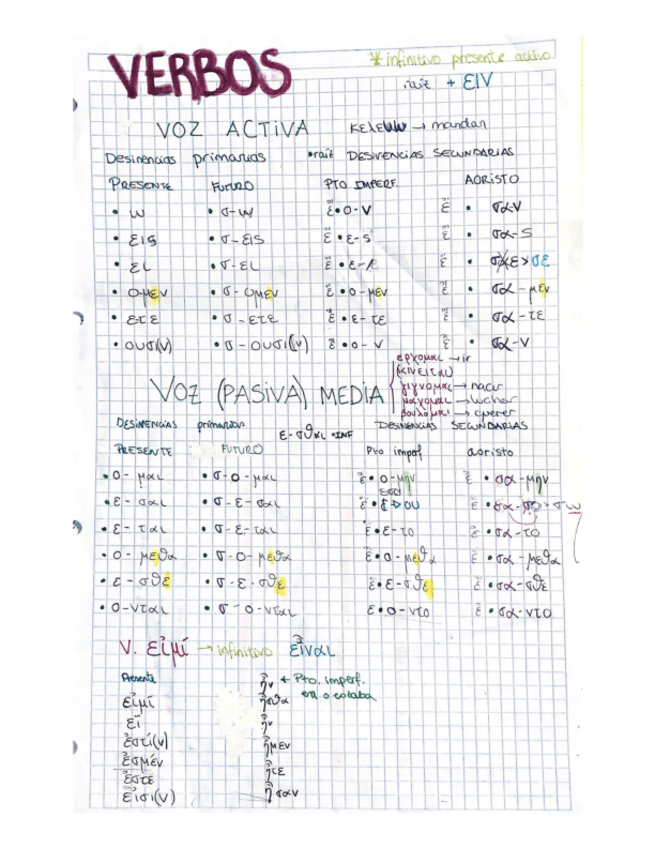 VERBOS
* infinitivo presente activo
raíz + EIV
VOZ ACTIVA
κελευω → mandar
Desinencias primarias
• raíz DESINENCIAS SECUNDARIAS
PRESENTE FUTURO PTO IMPERF. AORISTO
• ω • σ-ω ἐ•ο-ν ἐ • σα-ν
• εις • σ-εις ἐ•ε-ς ἐ • σα-ς
• ει • σ-ει ἐ•ε- ἐ • σαε>σε
• ο-μεν • σ-ομεν ἐ•ο-μεν ἐ • σα-μεν
• ετε • σ-ετε ἐ•ε-τε ἐ • σα-τε
• ουσι(ν) • σ-ουσι(ν) ἐ•ο-ν ἐ • σα-ν
ερχομαι → ir
(κινειται)
γιγνομαι → nacer
μαχομαι → luchar
βουλομαι → querer
VOZ (PASIVA) MEDIA
DESINENCIAS primarias
ε-σθαι = INF
DESINENCIAS SECUNDARIAS
PRESENTE FUTURO Pto imperf aoristo
• ο-μαι • σ-ο-μαι ἐ•ο-μην ἐ • σα-μην
εσο
• ε-σαι • σ-ε-σαι ἐ•ε>ου ἐ • σα-σο>σω
• ε-ται • σ-ε-ται ἐ•ε-το ἐ • σα-το
• ο-μεθα • σ-ο-μεθα ἐ•ο-μεθα ἐ • σα-μεθα
• ε-σθε • σ-ε-σθε ἐ•ε-σθε ἐ • σα-σθε
• ο-νται • σ-ο-νται ἐ•ο-ντο ἐ • σα-ντο
V. εἰμί → infinitivo εἶναι
Presente
ἦν ← Pto. imperf.
era o estaba
εἰμί ἦσθα
εἶ ἦν
ἐστί(ν) ἦμεν
ἐσμέν ἦτε
ἐστέ ἦσαν
εἰσι(ν)